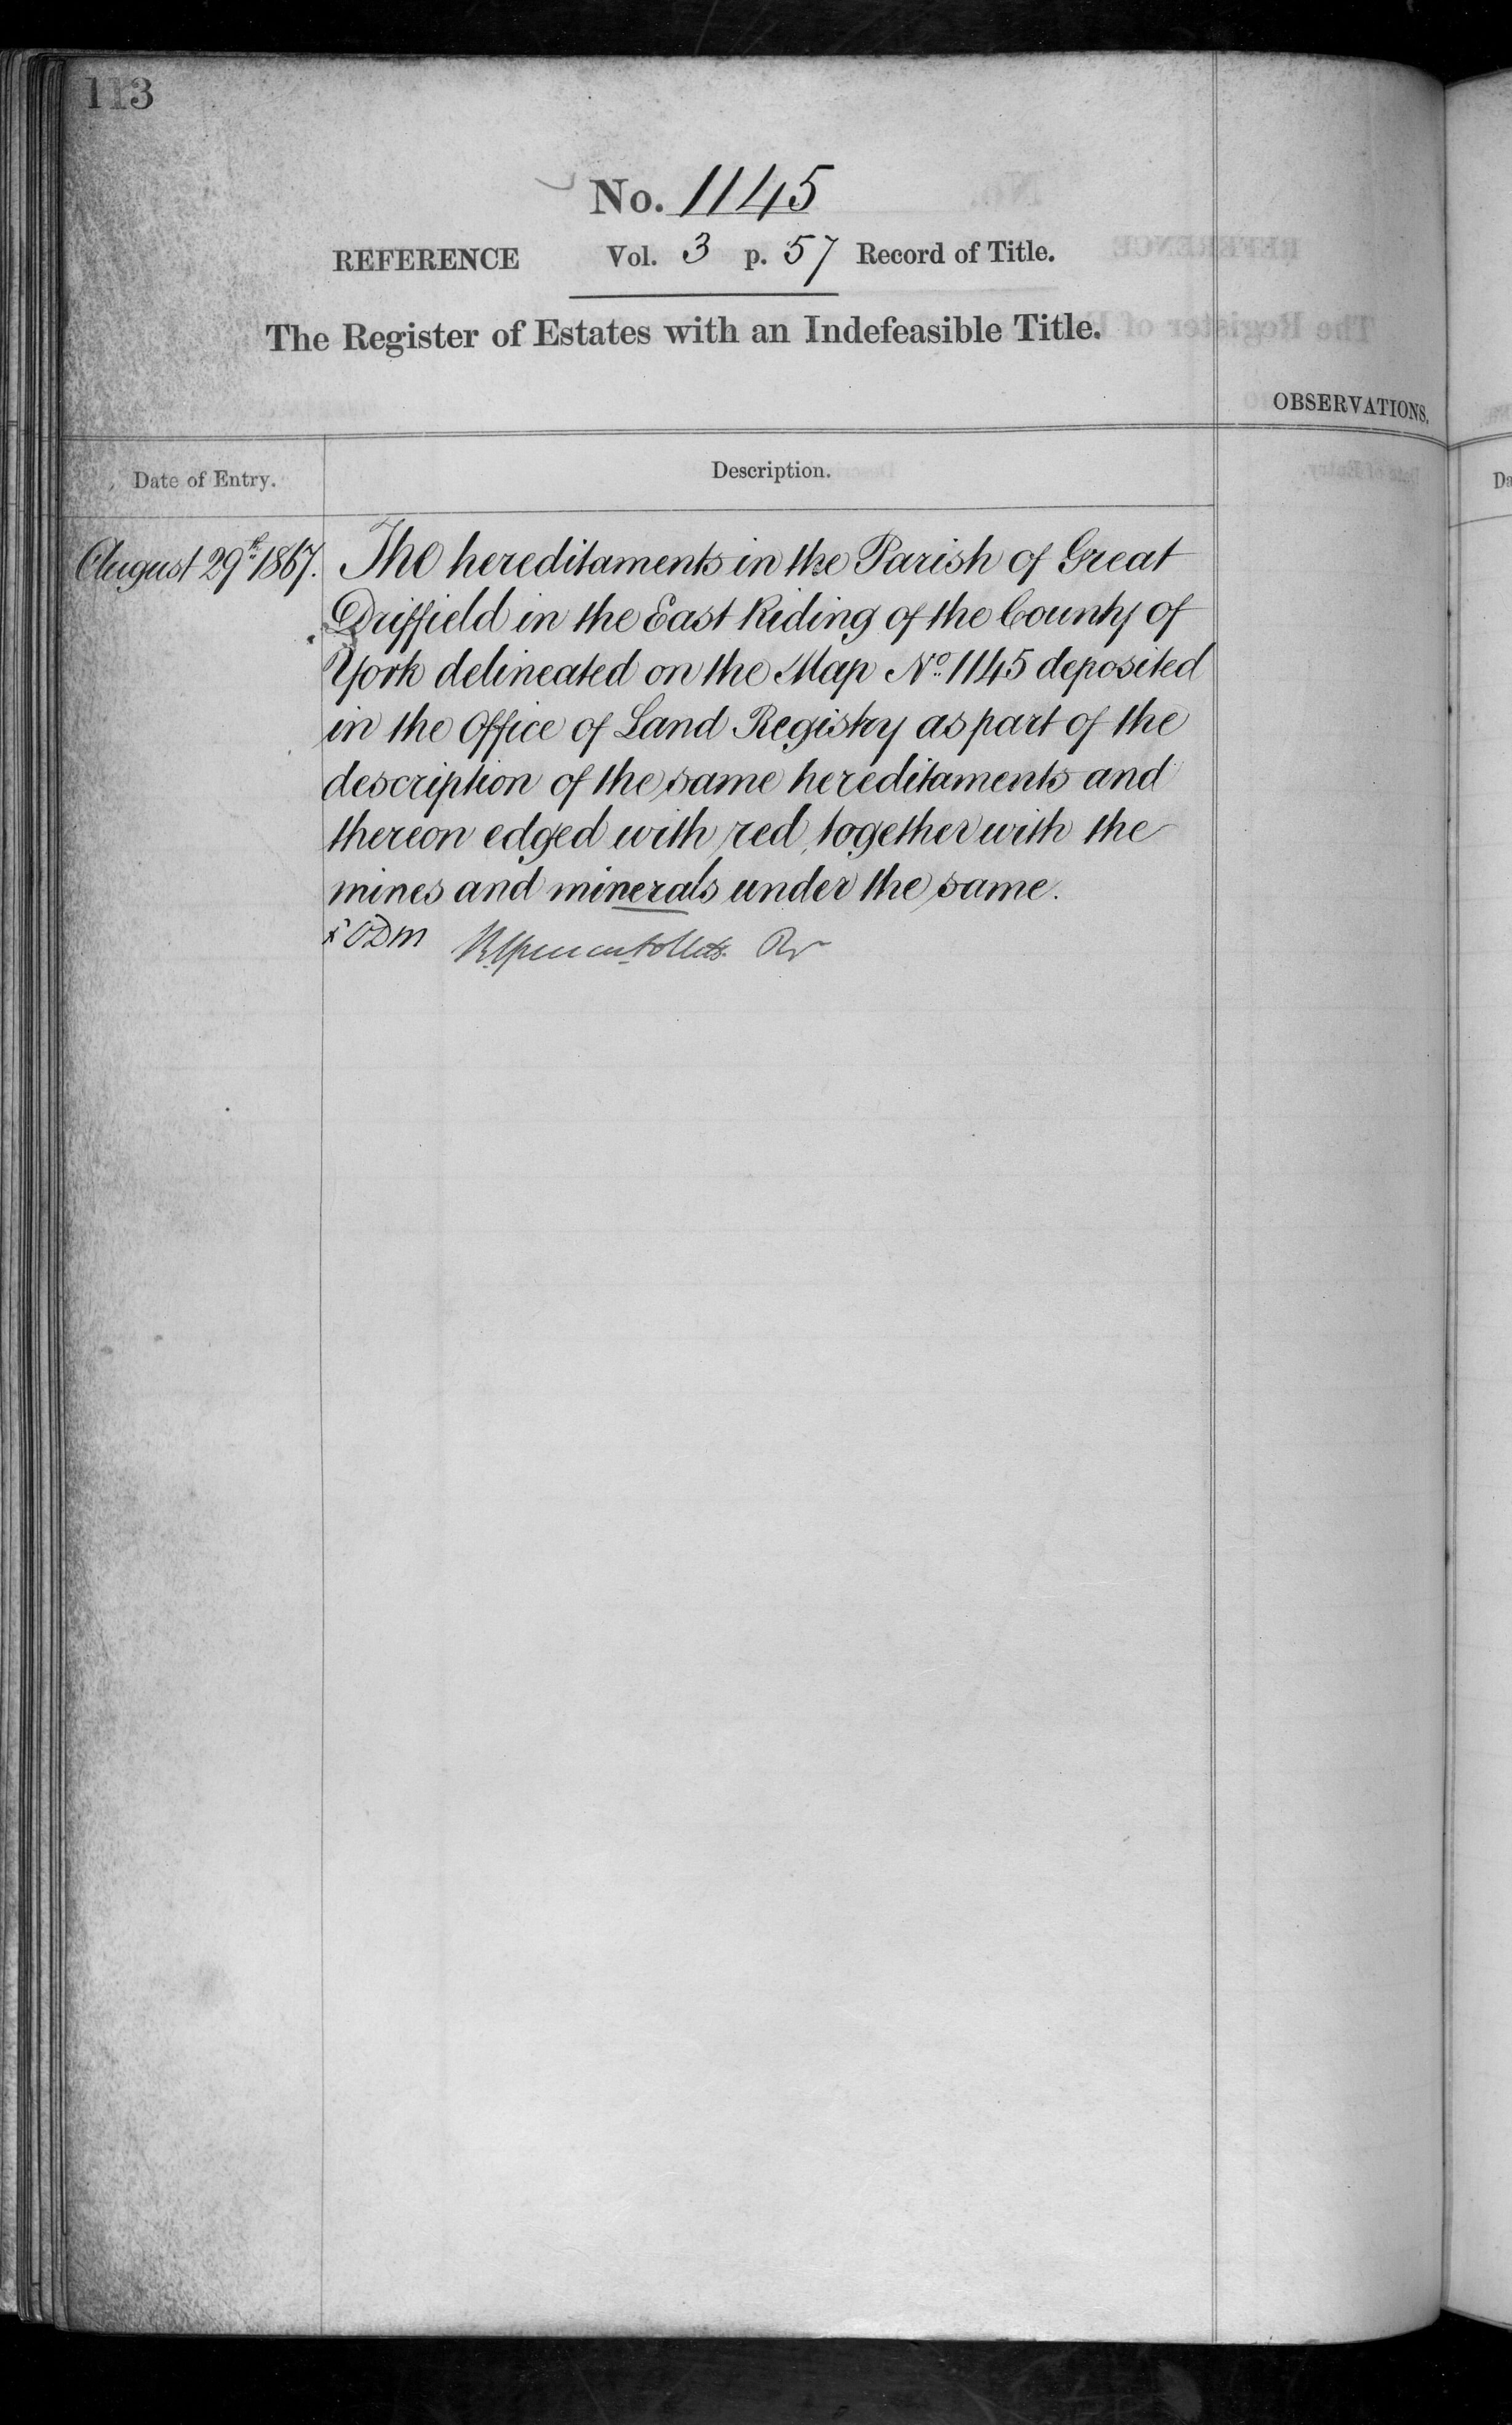 113
No. 1145
REFERENCE Vol. 3 p. 57 Record of Title.
The Register of Estates with an Indefeasible Title.
OBSERVATIONS.
Date of Entry. Description.
August 29th 1867. The hereditaments in the Parish of Great
Driffield in the East Riding of the County of
York delineated on the Map No. 1145 deposited
in the Office of Land Registry as part of the
description of the same hereditaments and
thereon edged with red, together with the
mines and minerals under the same.